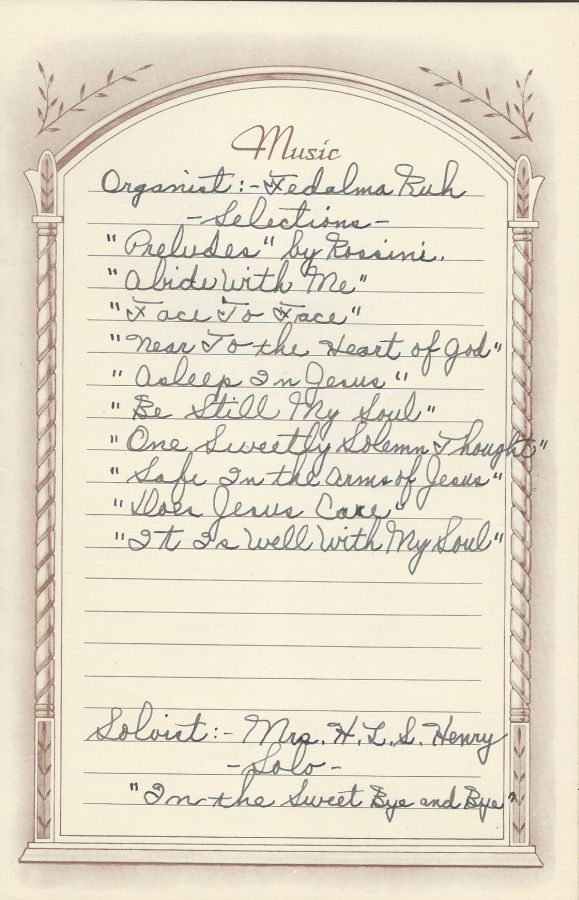 Music
Organist:- Fedalma Ruh
-Selections-
"Preludes" by Rossini.
"Abide With Me"
"Face To Face"
"Near To the Heart of God"
"Asleep In Jesus"
"Be Still My Soul"
"One Sweetly Solemn Thought"
"Safe In the Arms of Jesus"
"Does Jesus Care"
"It Is Well With My Soul"
Soloist:- Mrs. H. L. S. Henry
-Solo-
"In the Sweet Bye and Bye"